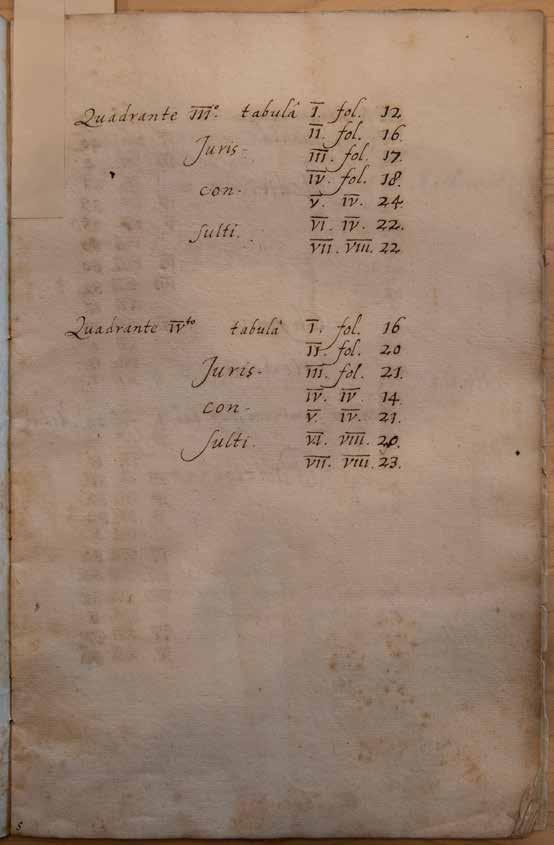 Quadrante III° tabulâ I. fol. 12
II. fol. 16
Juris- III. fol. 17.
IV. fol. 18.
con- V. IV. 24
VI. IV. 22.
sulti. VII. VIII. 22
Quadrante IVto tabulâ I. fol. 16
II. fol. 20
Juris- III. fol. 21.
con- IV. IV. 14.
V. IV. 21.
sulti. VI. VIII. 20.
VII. VIII. 23.
5